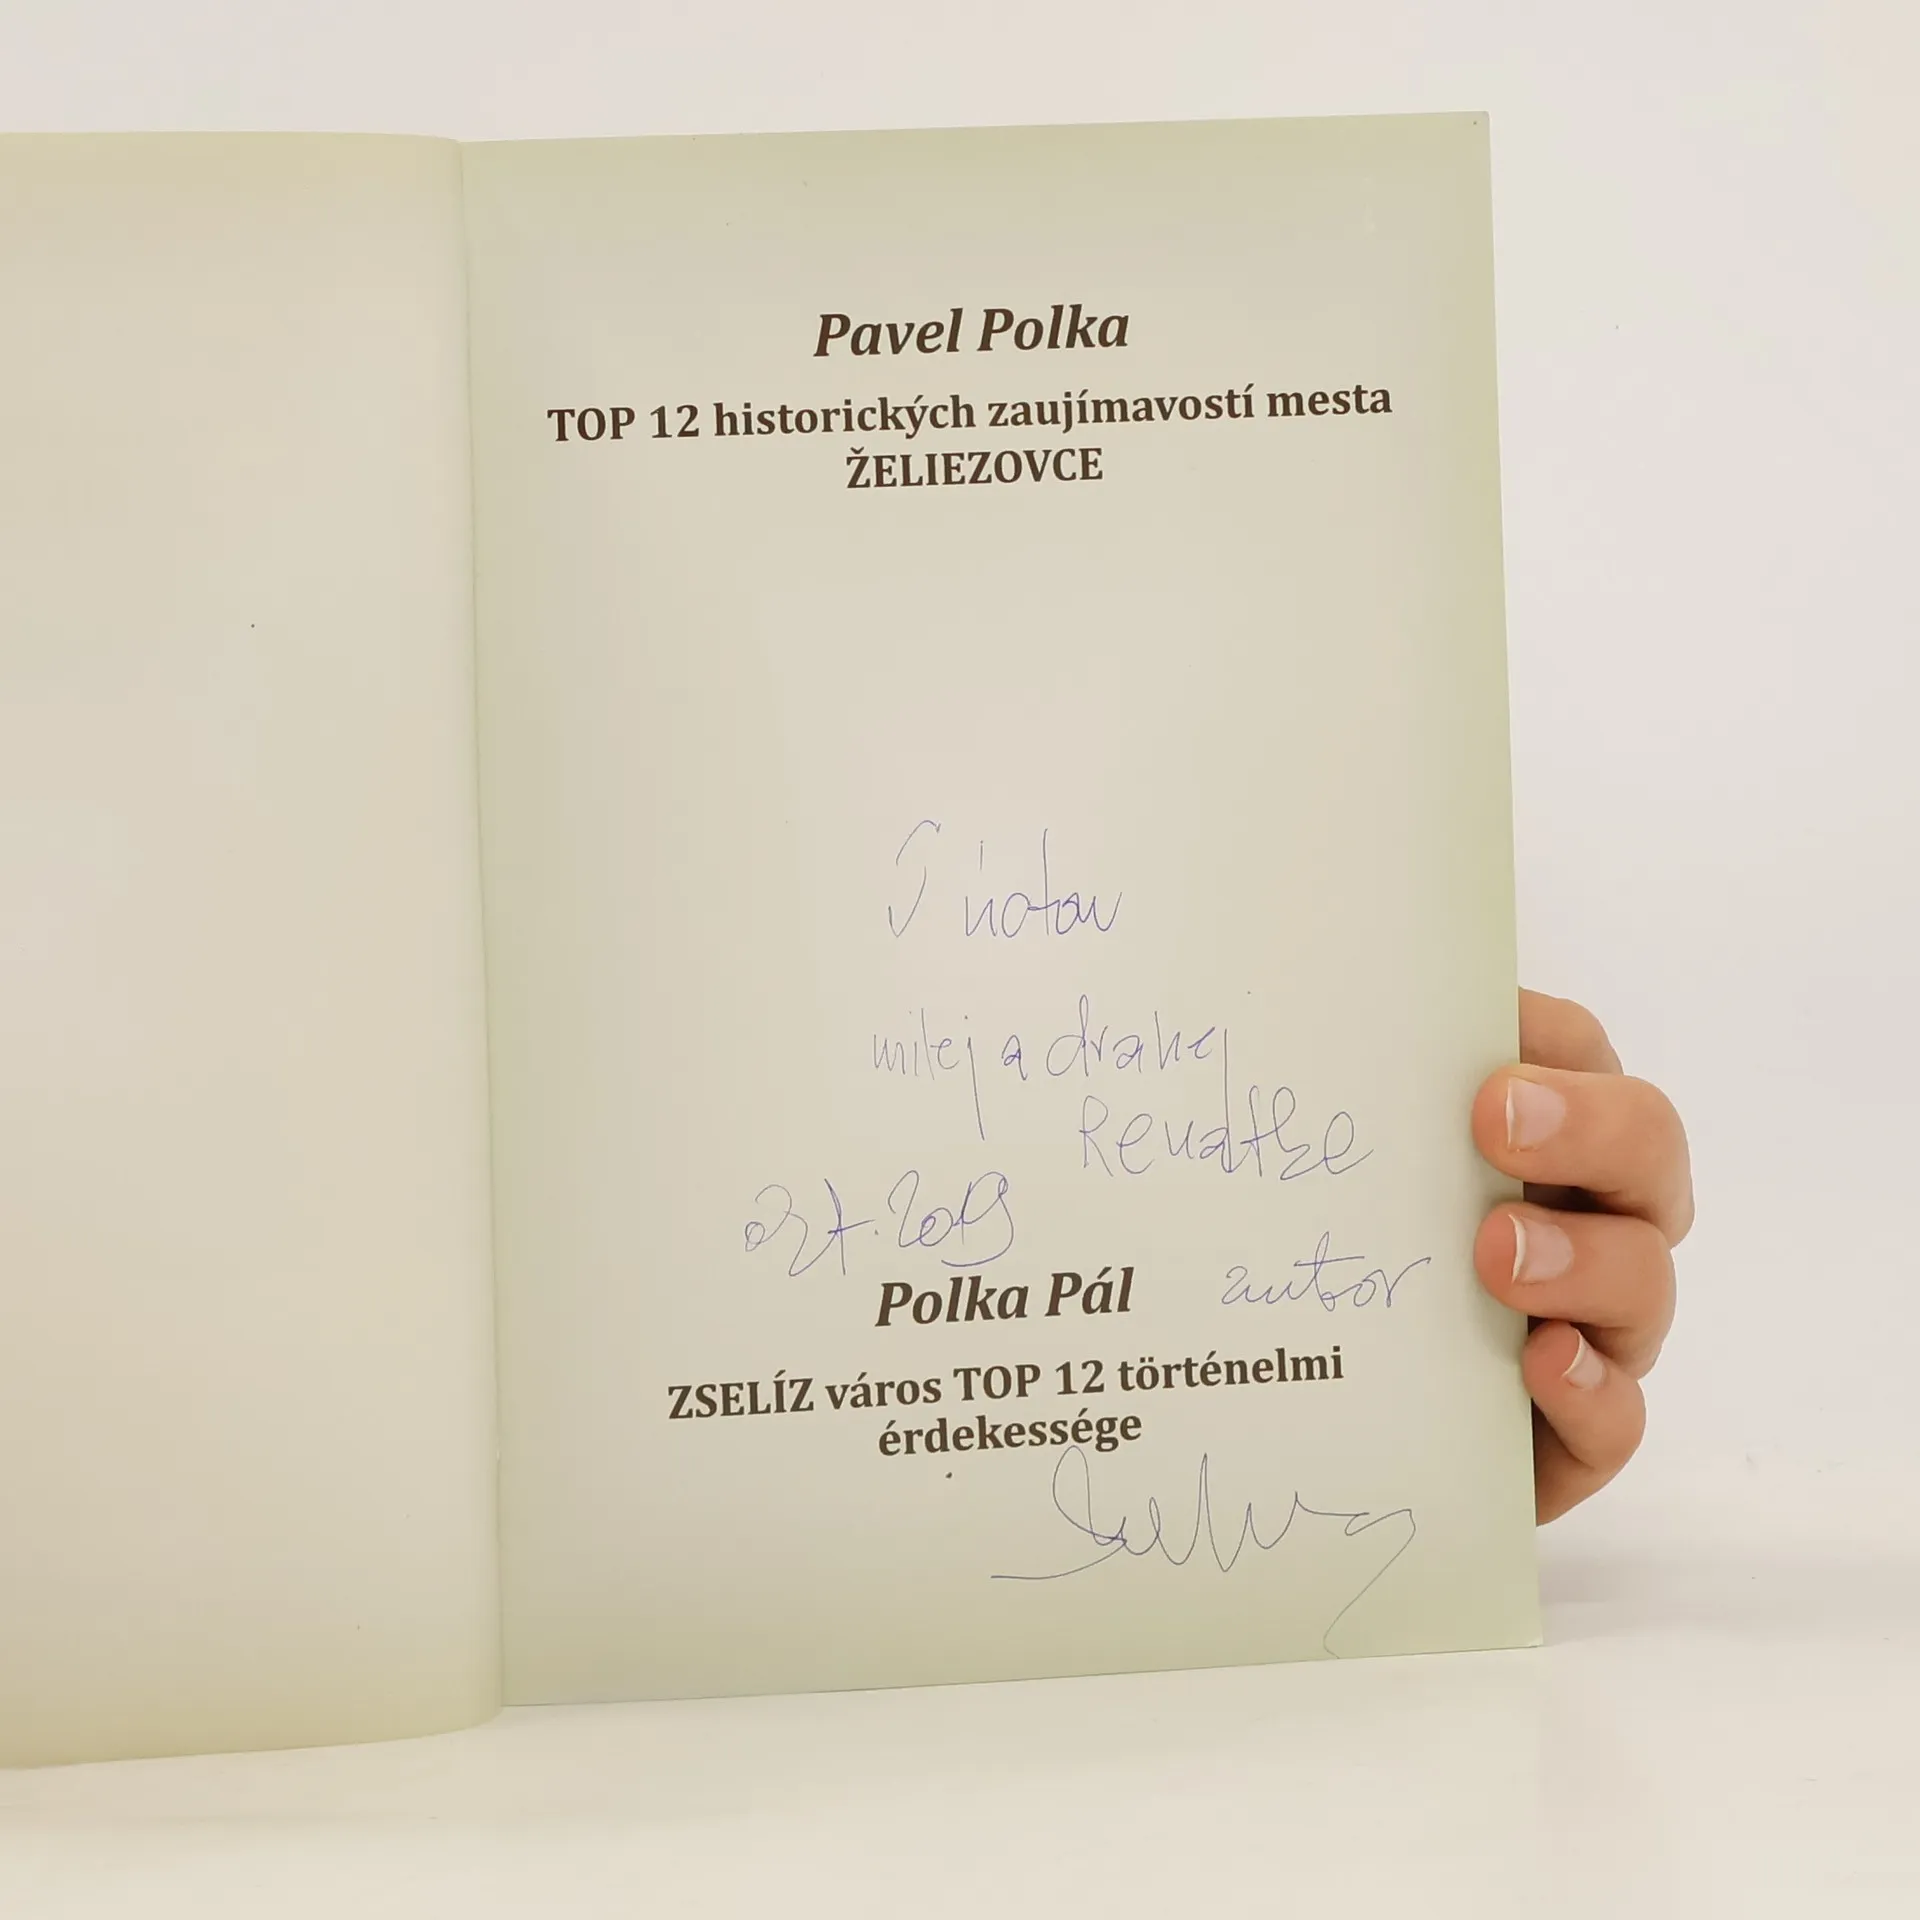 Pavel Polka
TOP 12 historických zaujímavostí mesta
ŽELIEZOVCE
S úctou
milej a drahej
Renatke
2019
autor
Polka Pál
ZSELÍZ város TOP 12 történelmi
érdekessége